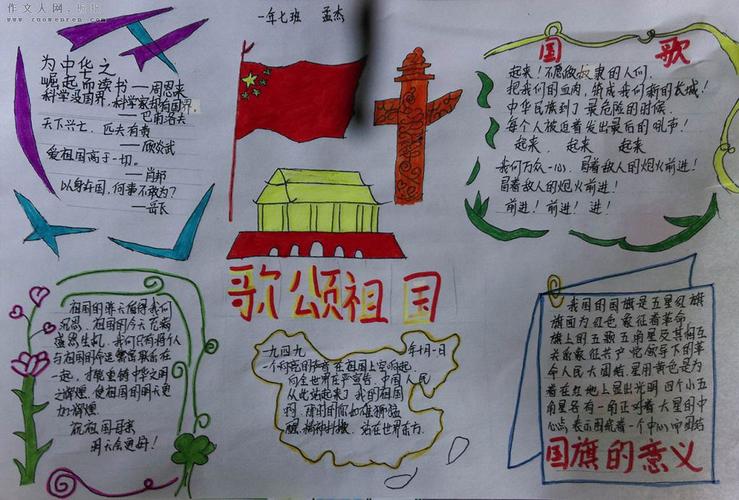 作文人网
www.zuowenren.com
一年七班 孟杰
为中华之
崛起而读书——周恩来
科学没国界,科学家却有国界。
——巴甫洛夫
天下兴亡,匹夫有责
爱祖国高于一切。
——肖邦
以身许国,何事不敢为?
——岳飞
国歌
起来!不愿做奴隶的人们,
把我们的血肉,筑成我们新的长城!
中华民族到了最危险的时候,
每个人被迫着发出最后的吼声!
起来,起来 起来
我们万众一心,冒着敌人的炮火前进!
冒着敌人的炮火前进!
前进!前进!进!
歌颂祖国
祖国的昨天值得我们
沉思,祖国的今天
生机,我们只有将个人
与祖国的命运紧紧联系在
一起,才能重铸中华之明
之辉煌,使祖国的明天更
加辉煌
祝祖国母亲
明天会更好!
一九四九年十月一日
一个
向全世界庄严宣告,中国人民
从此站起来了 我的祖国
精神抖擞,站在世界东方
我国的国旗是五星红旗
旗面为红色象征着革命
旗上的五颗五角星及其相互
关系象征共产党领导下的革
命人民大团结,星用黄色是为
着在红地上显出光明 四个小五
角星各有一角正对着大星的中
心点,表示围绕着一个中心而团结
国旗的意义